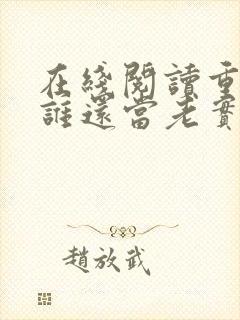 在綫閱讀重
誰還當老實
趙放武